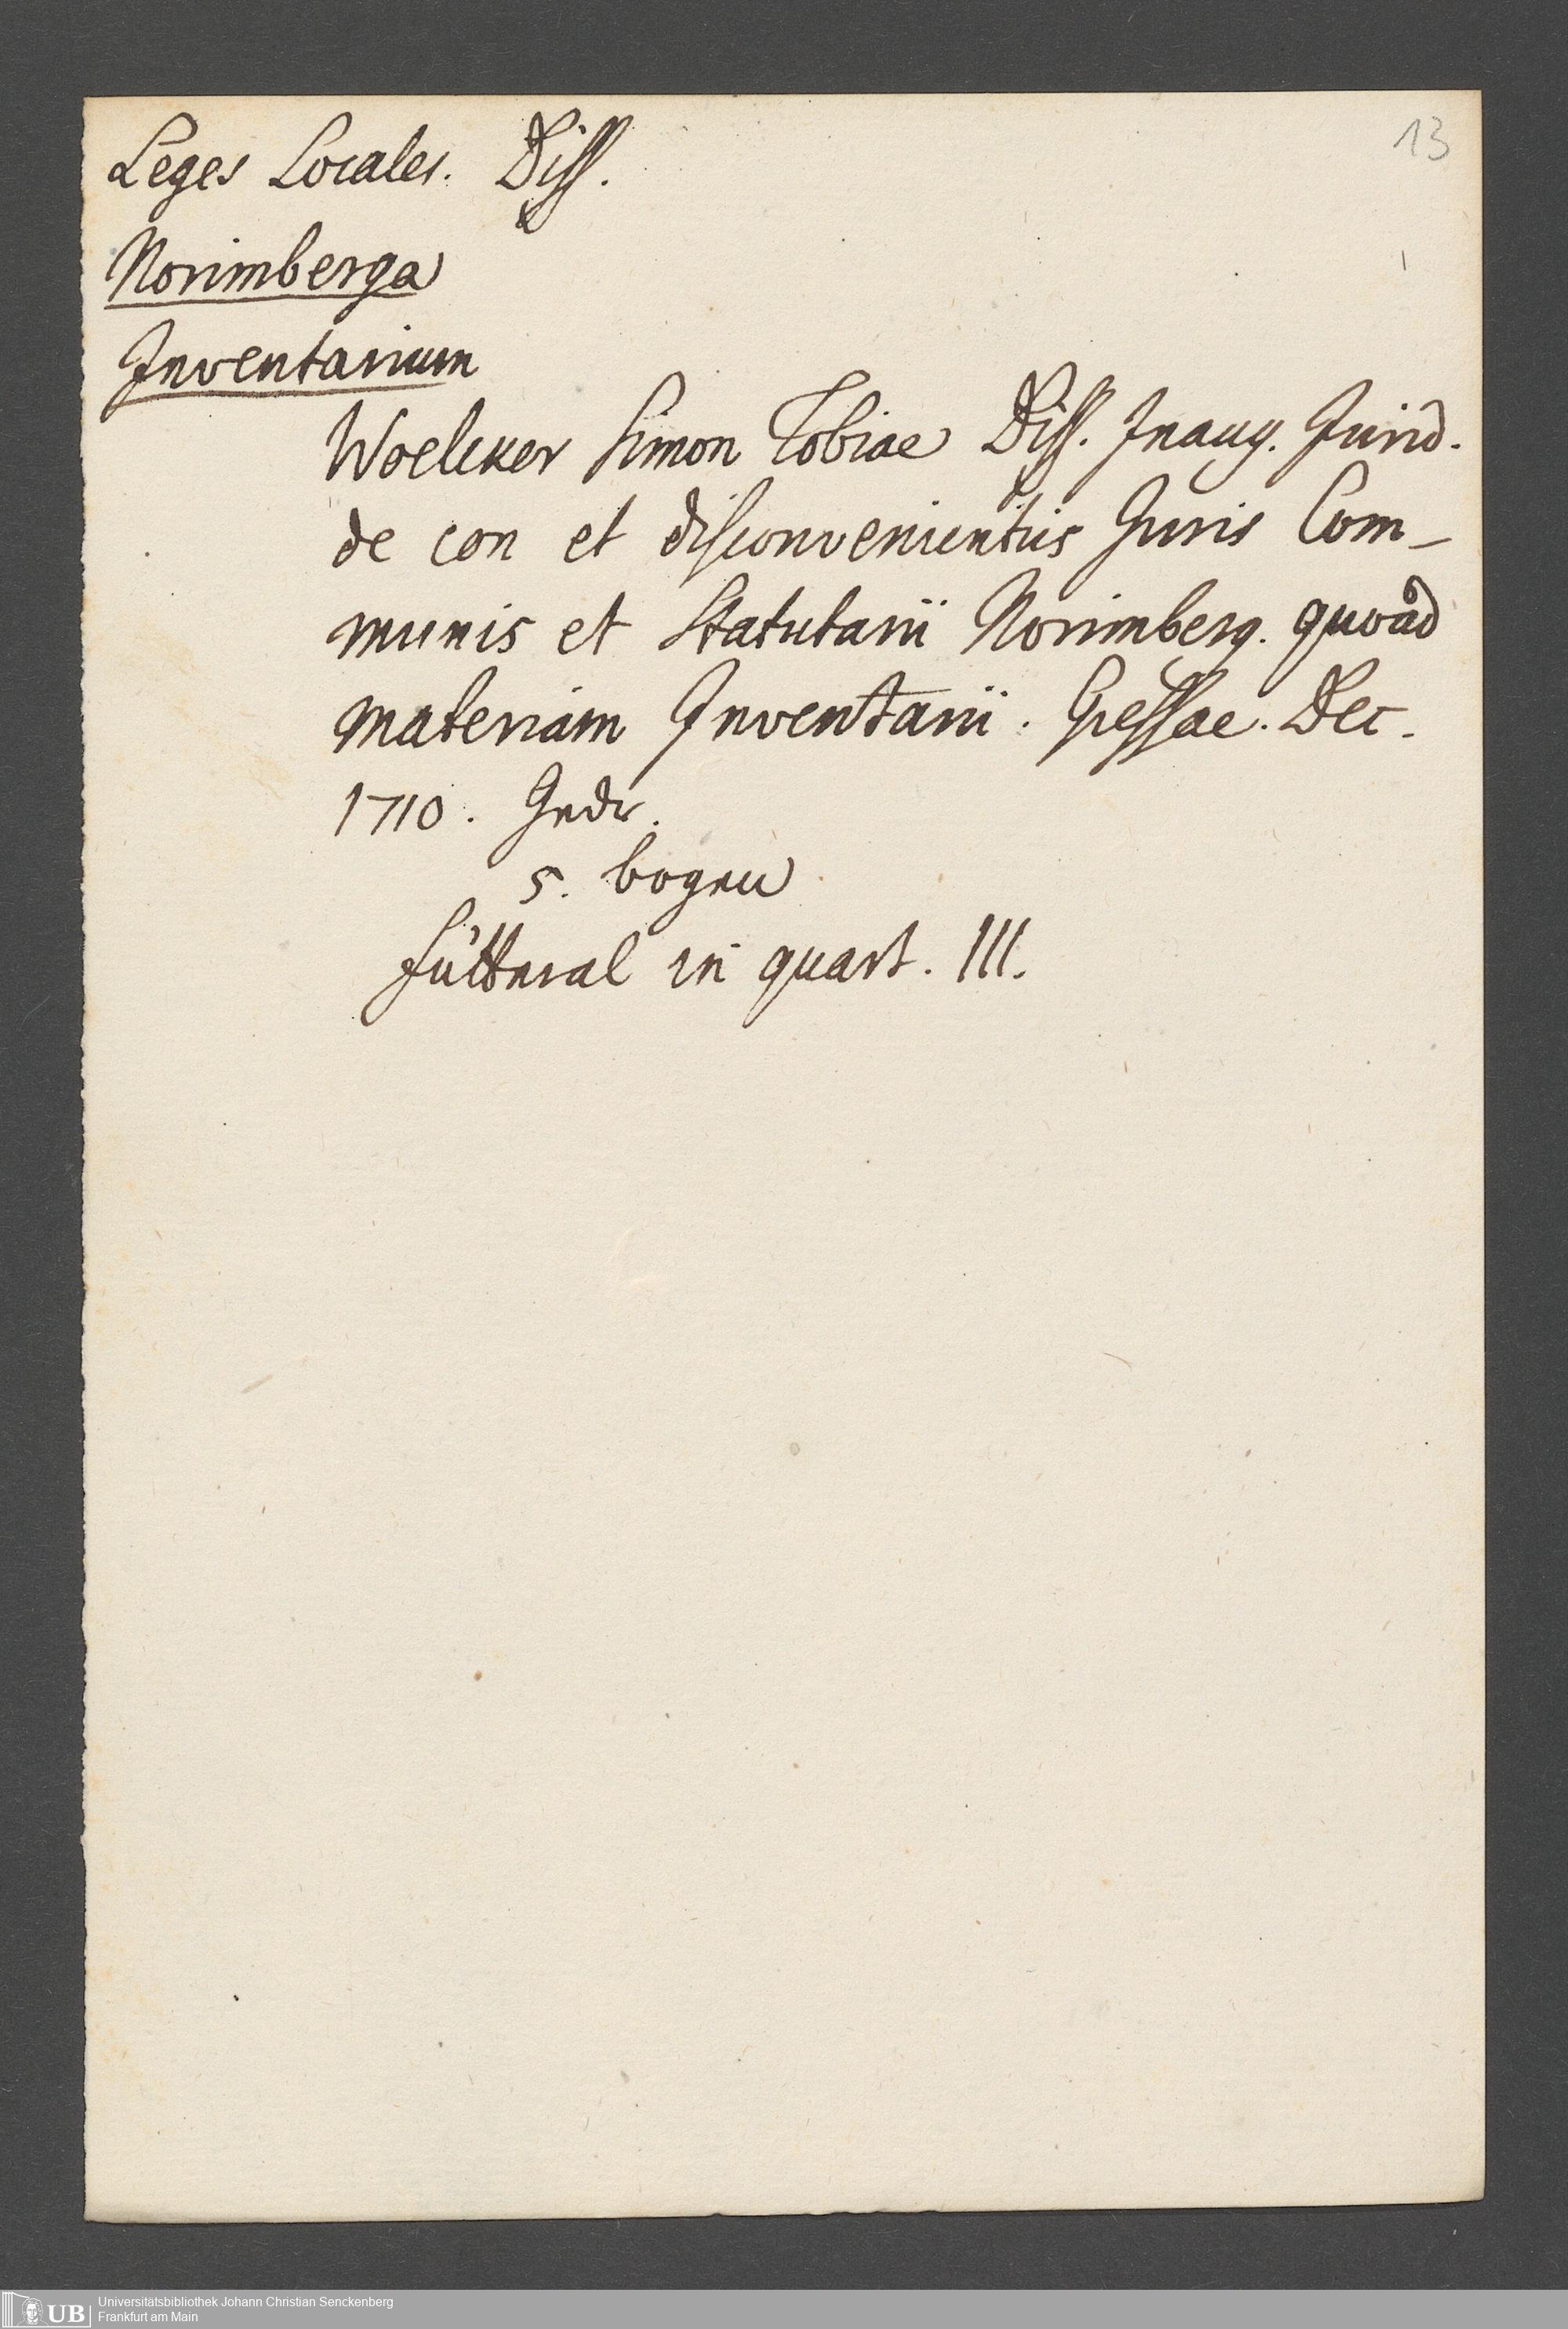 13
Leges Locales. Diss.
Norimberga
Inventarium
Woelcker Simon Tobiae Diss. Inaug. Jurid.
de con et disconvenientiis Juris Com-
munis et Statutarii Norimberg. quoad
materiam Inventarii. Giessae. Dec.
1710. Gedr.
5. bogen
Futteral in quart. III.
UB
Universitätsbibliothek Johann Christian Senckenberg
Frankfurt am Main